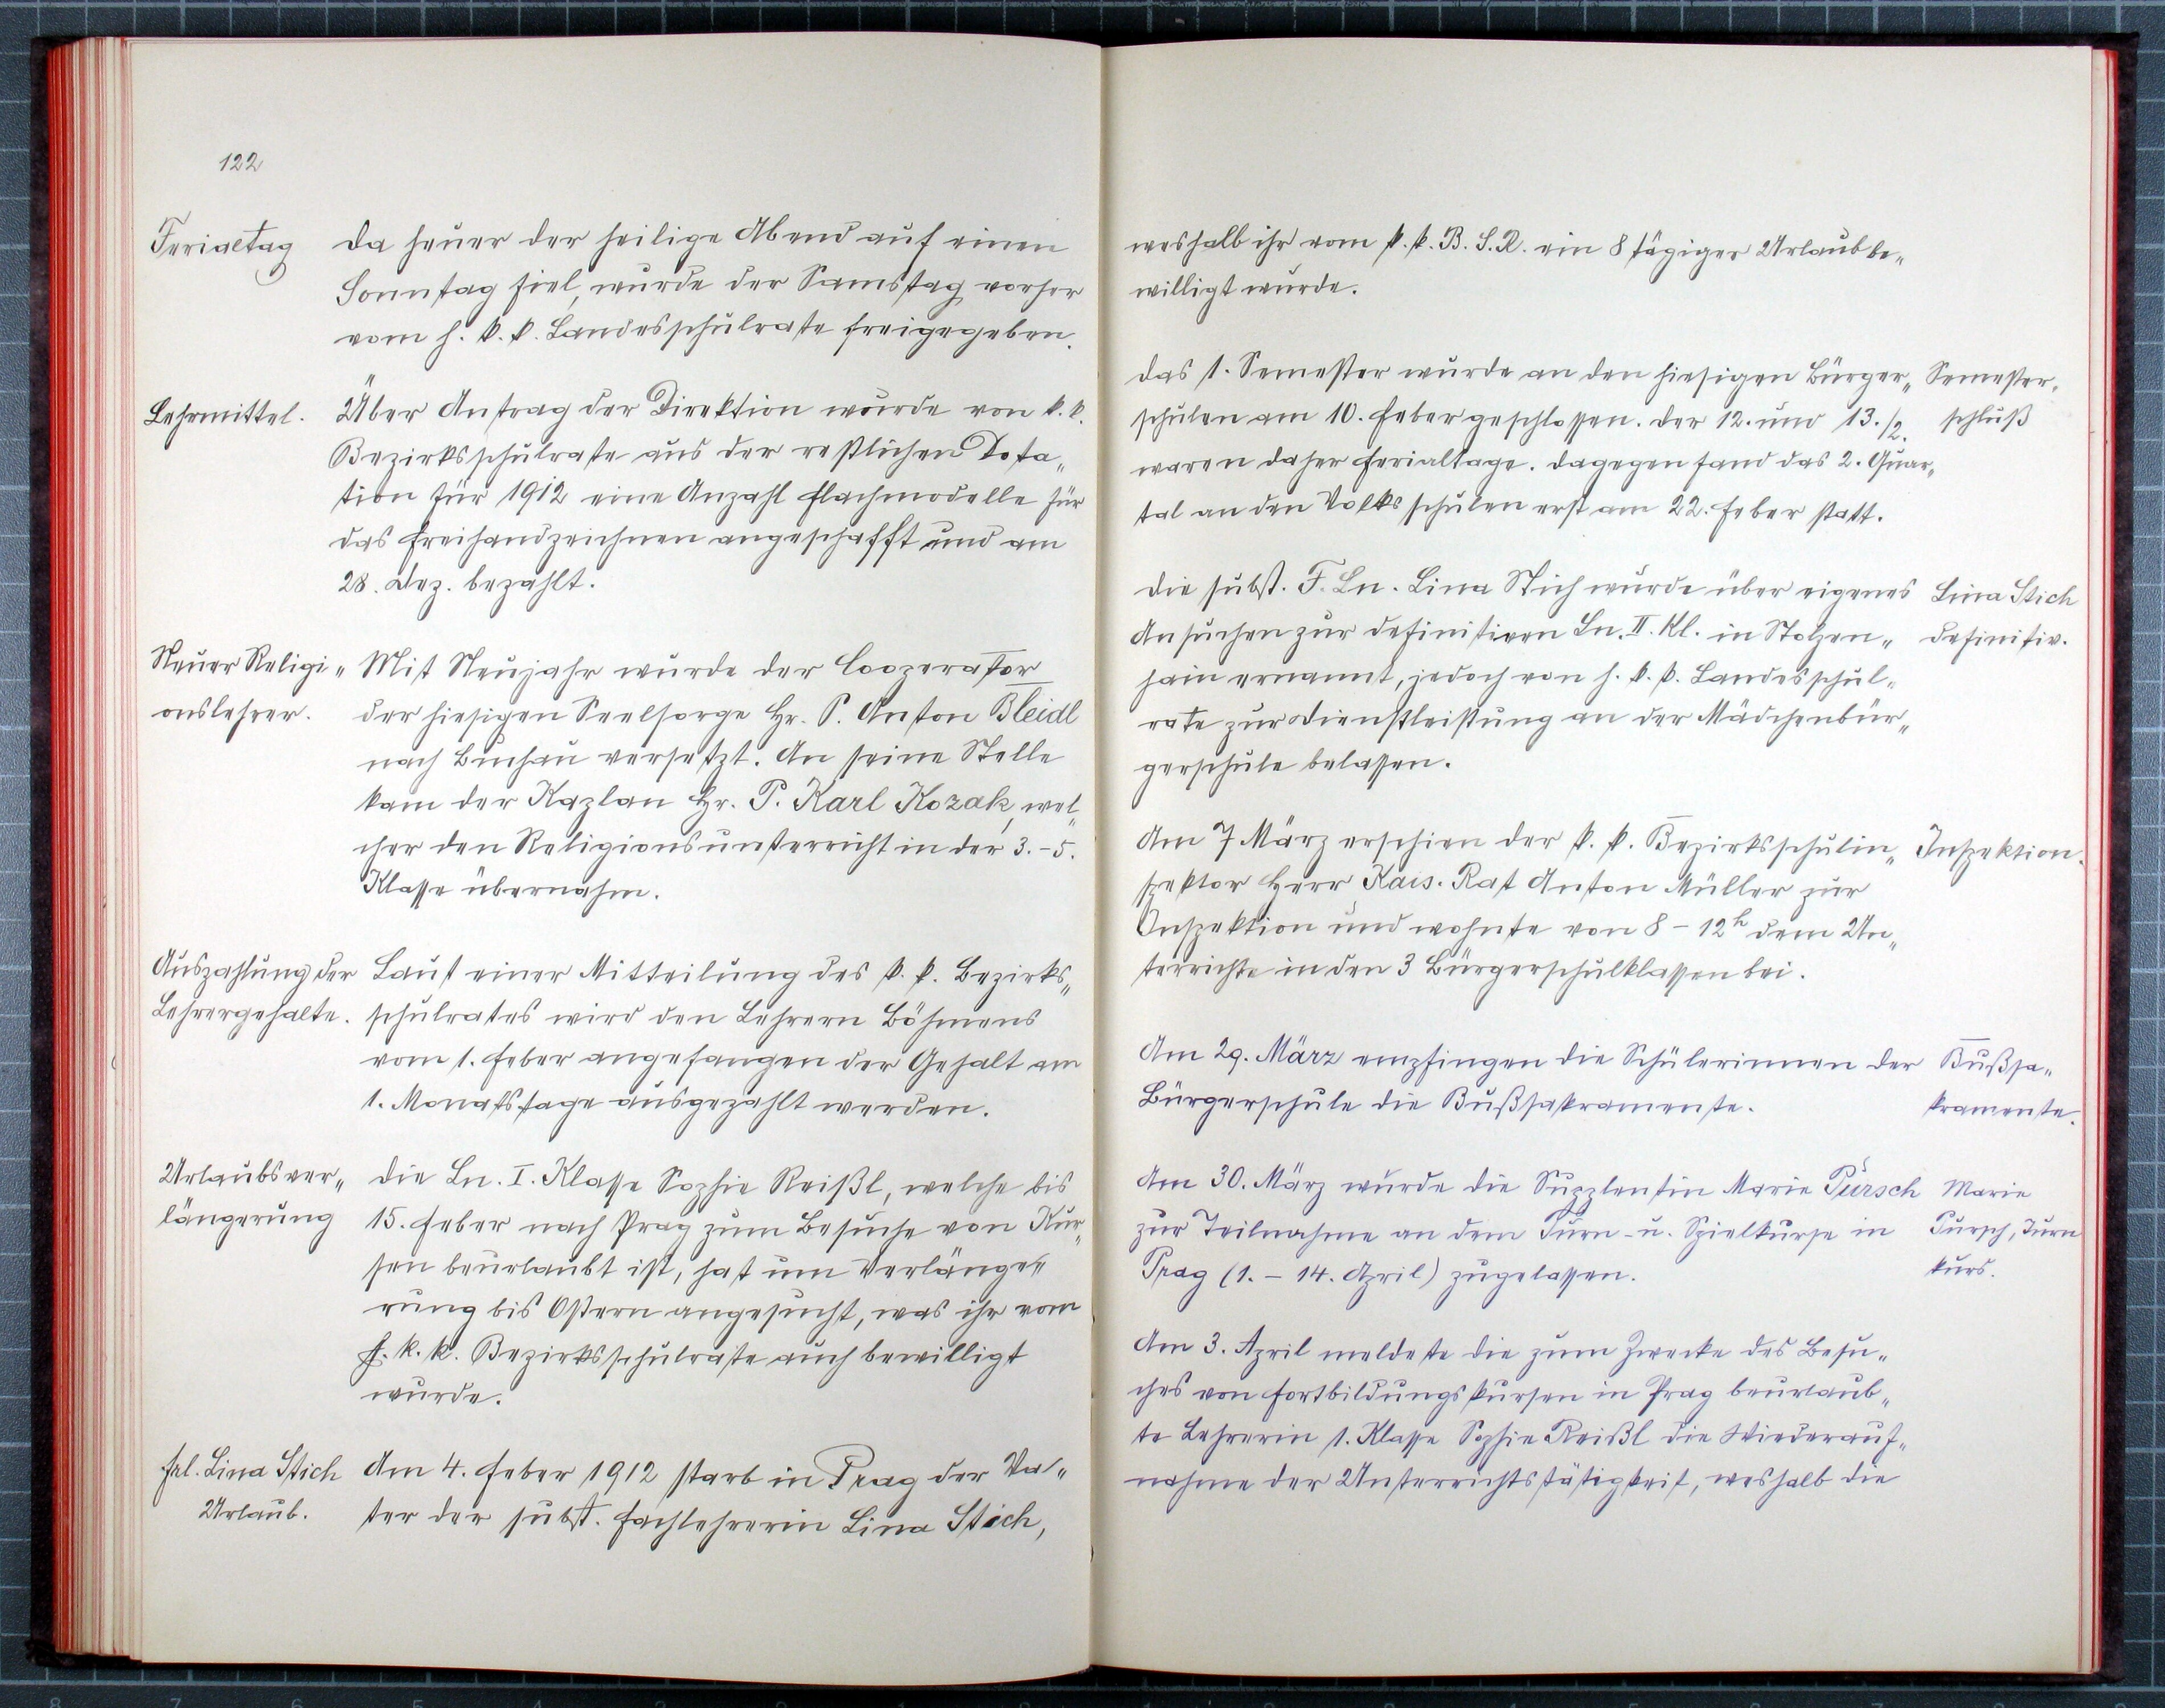 122
Ferialtag
Da heuer der heilige Abend auf einen
Sonntag fiel, wurde der Samstag vorher
vom h. k. k. Landesschulrate freigegeben.
Lehrmittel.
Über Antrag der Direktion wurde von k. k.
Bezirksschulrate aus der restlichen Dota„
tion für 1912 eine Anzahl Flachmodelle für
das Freihandzeichnen angeschafft und am
28. Dez. bezahlt.
Neuer Religi„
onslehrer.
Mit Neujahr wurde der Cooperator
der hiesigen Seelsorge Hr. P. Anton Bleidl
nach Buchau versetzt. An seine Stelle
kam der Kaplan Hr. P. Karl Kozak, wel„
cher den Religionsunterricht in der 3.–5.
Klasse übernahm.
Auszahlung der
Lehrergehalte.
Laut einer Mitteilung des k. k. Bezirks„
schulrates wird den Lehrern Böhmens
vom 1. Feber angefangen der Gehalt am
1. Monatstage ausgezahlt werden.
Urlaubsver„
längerung
Die Ln. I. Klasse Sophie Reißl, welche bis
15. Feber nach Prag zum Besuche von Kur„
sen beurlaubt ist, hat um Verlänge„
rung bis Ostern angesucht, was ihr vom
h. k. k. Bezirksschulrate auch bewilligt
wurde.
Frl. Lina Stich
Urlaub.
Am 4. Feber 1912 starb in Prag der Va„
ter der subst. Fachlehrerin Lina Stich,
weshalb ihr vom k. k. B. S. R. ein 8 tägiger Urlaub be„
willigt wurde.
Das 1. Semester wurde an den hiesigen Bürger„
schulen am 10. Feber geschlossen. Der 12. und 13./2.
waren daher Ferialtage. Dagegen fand das 2. Quar„
tal an den Volksschulen erst am 22. Feber statt.
Semester„
schluß
Die subst. F. Ln. Lina Stich wurde über eigenes
Ansuchen zur definitiven Ln. II. Kl. in Stolzen„
hain ernannt, jedoch von h. k. k. Landesschul„
rate zur Dienstleistung an der Mädchenbür„
gerschule belassen.
Lina Stich
definitiv.
Am 7 März erschien der k. k. Bezirksschulin„
spektor Herr Kais. Rat Anton Müller zur
Inspektion und wohnte von 8 – 12h dem Un„
terrichte in den 3 Bürgerschulklassen bei.
Inspektion.
Am 29. März empfingen die Schülerinnen der
Bürgerschule die Bußsakramente.
Bußsa„
kramente.
Am 30. März wurde die Supplentin Marie Pursch
zur Teilnahme an dem Turn- u. Spielkurse in
Prag (1. – 14. April) zugelassen.
Marie
Pursch, Turn
kurs.
Am 3. April meldete die zum Zwecke des Besu„
ches von Fortbildungskursen in Prag beurlaub„
te Lehrerin 1. Klasse Sophie Reißl die Wiederauf„
nahme der Unterrichtstätigkeit, weshalb die